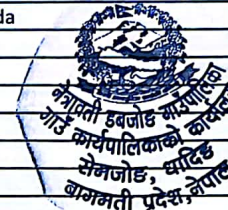 da
नेत्रावती डबजोङ गाउँपालिका
गाउँ कार्यपालिकाको कार्यालय
सेमजोङ, धादिङ
बागमती प्रदेश, नेपाल